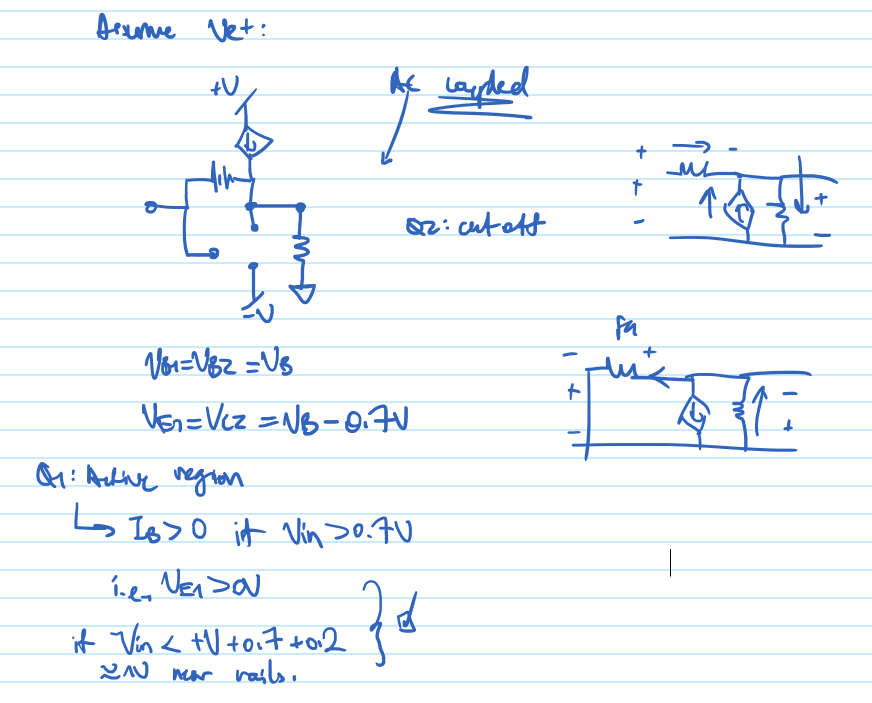 Assume Vc+:
+V
AC coupled
+ -
+
+
-
-
Q2: cut off
-V
- +
+
-
-
+
VB1=VB2=VB
VE1=VC2=VB-0.7V
Q1: Active region
IB>0 if Vin>0.7V
i.e, VE1>0V
if Vin < +V+0.7+0.2
≈1V near rails.